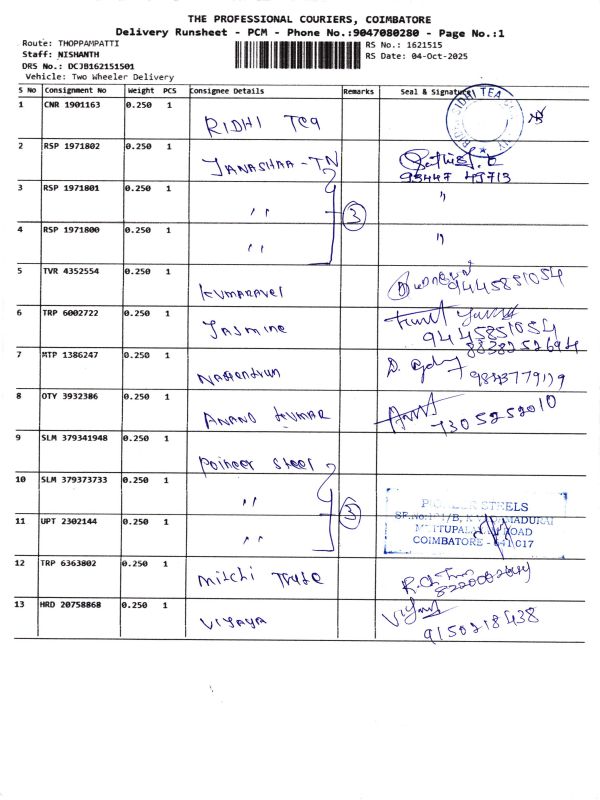 THE PROFESSIONAL COURIERS, COIMBATORE
Delivery Runsheet - PCM - Phone No.:9047080280 - Page No.:1
Route: THOPPAMPATTI
RS No.: 1621515
Staff: NISHANTH
RS Date: 04-Oct-2025
DRS No.: DCJB162151501
Vehicle: Two Wheeler Delivery
S No Consignment No Weight PCS Consignee Details Remarks Seal & Signature
1 CNR 1901163 0.250 1 RIDHI Tea
2 RSP 1971802 0.250 1 JANASHAA-TN
3 RSP 1971801 0.250 1 " "
③
4 RSP 1971800 0.250 1 " "
5 TVR 4352554 0.250 1 Kumaravel 9445851054
6 TRP 6002722 0.250 1 Jasmine 9445851054
8838252694
7 MTP 1386247 0.250 1 Nagendran
8 OTY 3932386 0.250 1 ANAND KUMAR 7305252010
9 SLM 379341948 0.250 1 Poineer Steel
10 SLM 379373733 0.250 1 " "
③
PIONEER STEELS
11 UPT 2302144 0.250 1 " "
COIMBATORE
12 TRP 6363802 0.250 1
13 HRD 20758868 0.250 1 Vijaya 9150218438